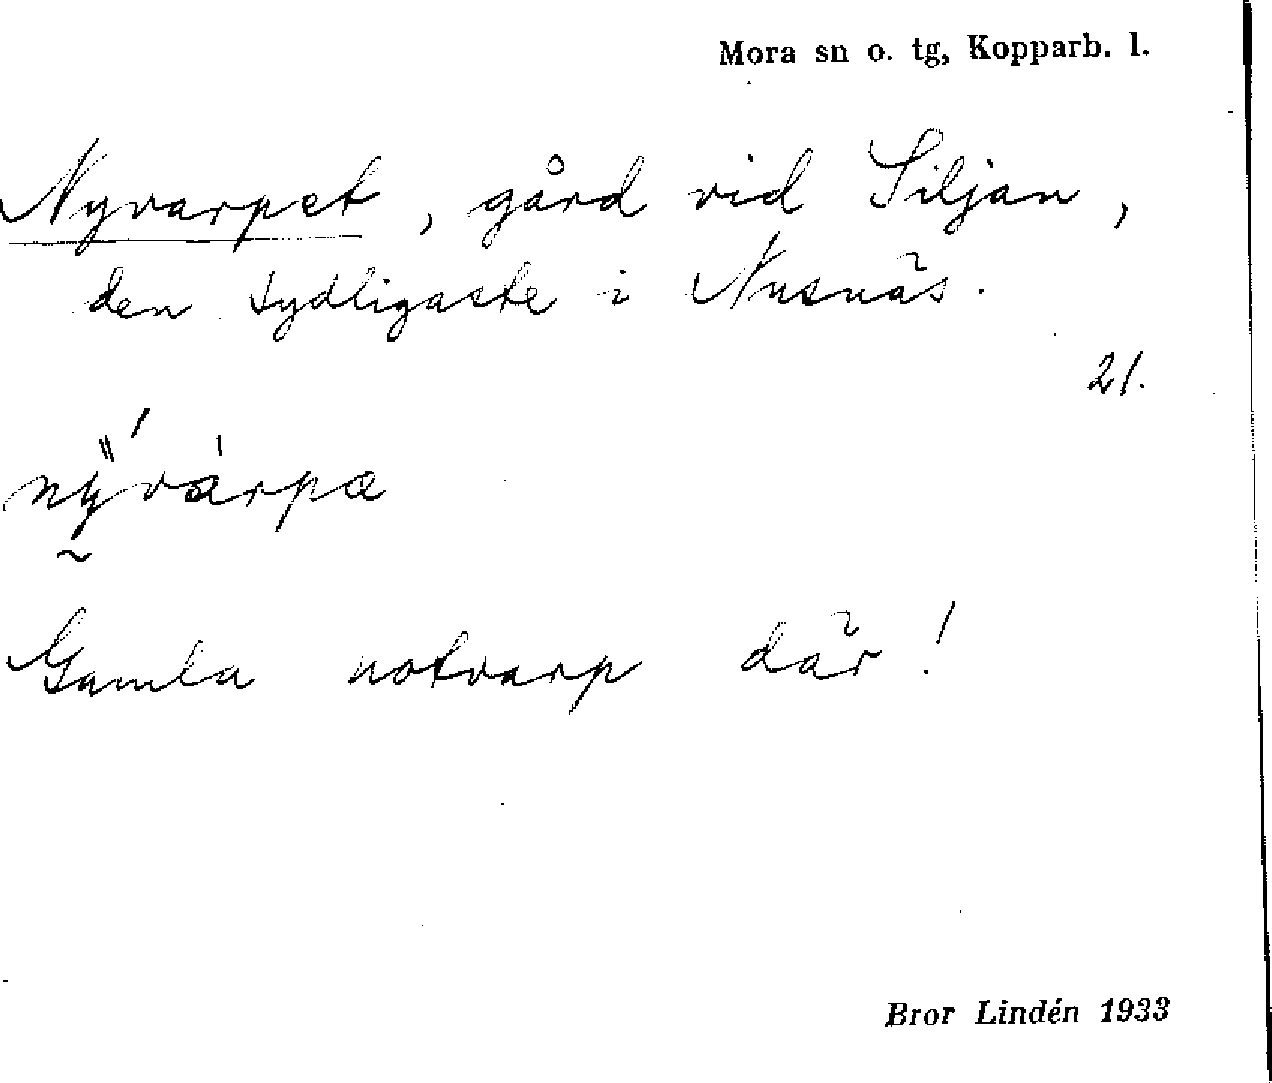 Mora sn o. tg, Kopparb. l.
Nyvarpet, gård vid Siljan,
den sydligaste i Nusnäs.
21.
nÿ́várpæ
Gamla notvarp där!
Bror Lindén 1933